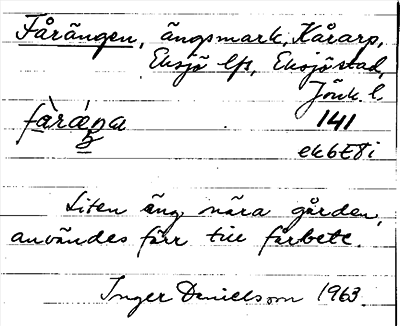 Fårängen, ängsmark, Kårarp,
Eksjö lfs, Eksjö stad,
Jönk. l.
141
ek6E8i
Liten äng nära gården,
användes förr till fårbete.
Inger Danielsson 1963.